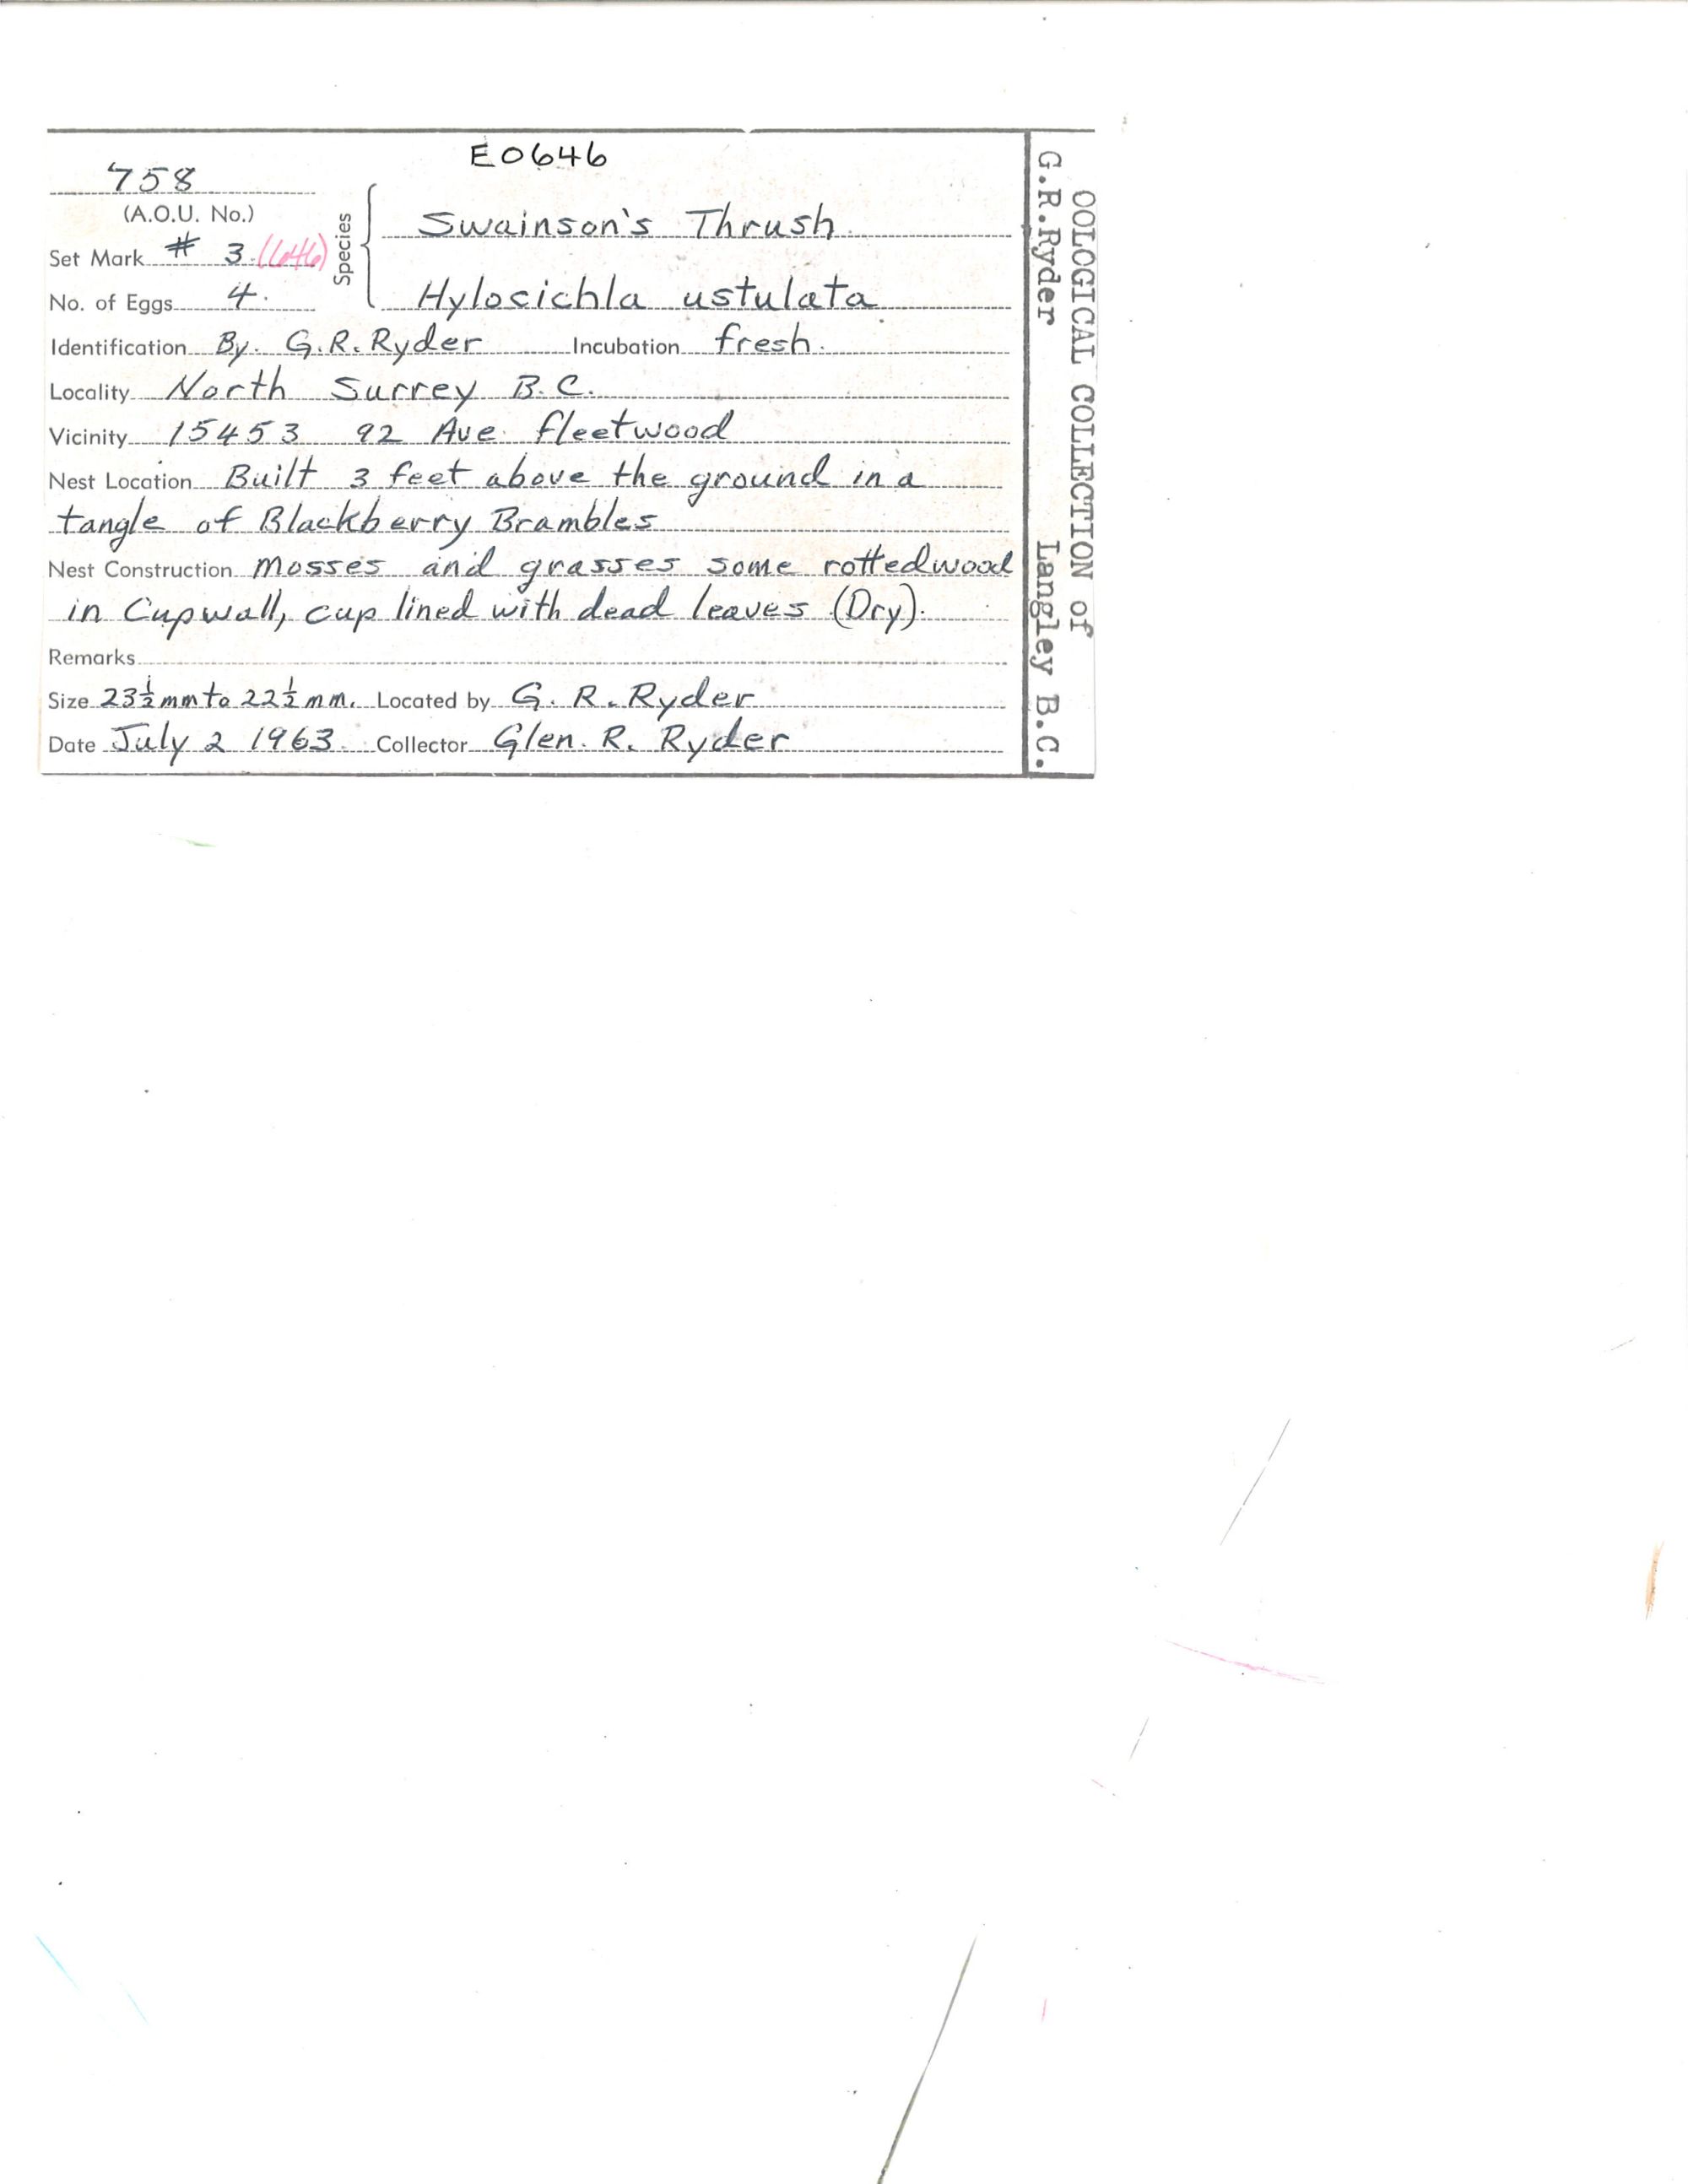 E0646
758
(A.O.U. No.)
Set Mark # 3 (646)
No. of Eggs 4.
Species
Swainson's Thrush
Hylocichla ustulata
Identification By. G.R. Ryder Incubation fresh.
Locality North Surrey B.C.
Vicinity 15453 92 Ave. Fleetwood
Nest Location Built 3 feet above the ground in a
tangle of Blackberry Brambles
Nest Construction Mosses and grasses some rottedwood
in Cupwall, cup lined with dead leaves (Dry).
Remarks
Size 23½mm to 22½mm. Located by G. R. Ryder
Date July 2 1963. Collector Glen. R. Ryder
OOLOGICAL COLLECTION of
G.R.Ryder Langley B.C.